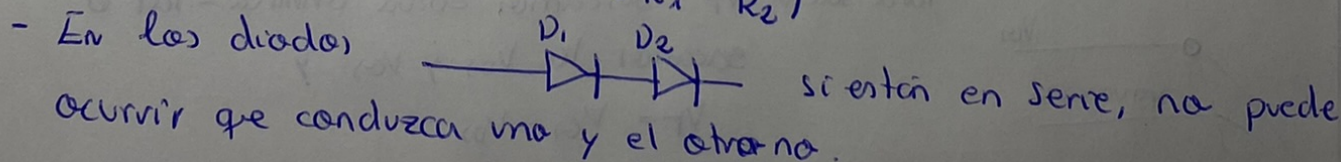 R2)
- En los diodos D1 D2 si están en serie, no puede
ocurrir que conduzca uno y el otro no.